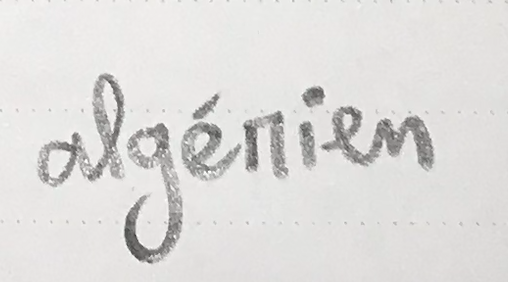 algénien